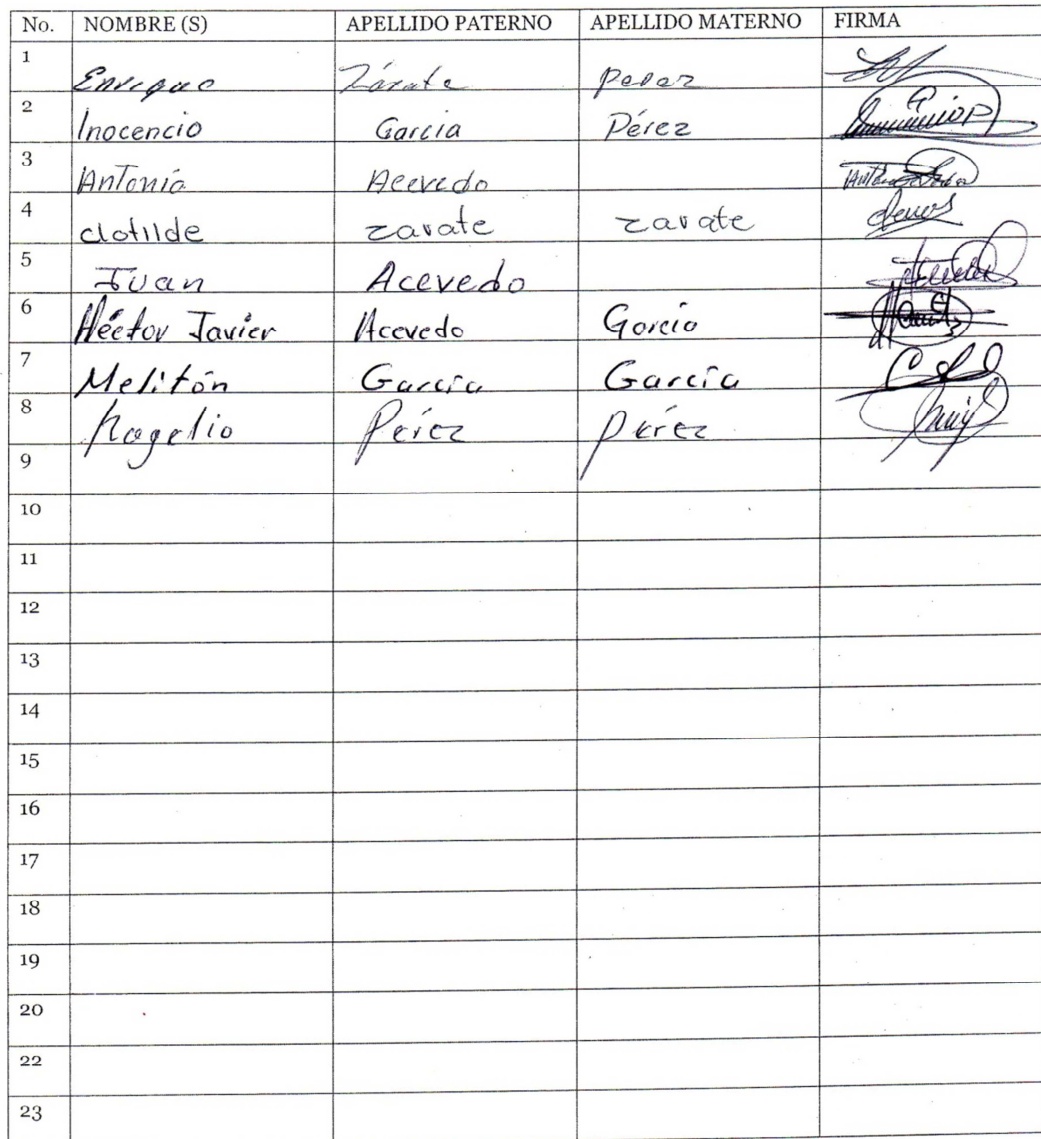 No. NOMBRE (S) APELLIDO PATERNO APELLIDO MATERNO FIRMA
1 Enrique Zárate Perez
2 Inocencio Garcia Pérez
3 Antonio Acevedo
4 clotilde zarate zarate
5 Juan Acevedo
6 Héctor Javier Acevedo Garcia
7 Melitón García García
8 Rogelio Pérez Pérez
9
10
11
12
13
14
15
16
17
18
19
20
22
23